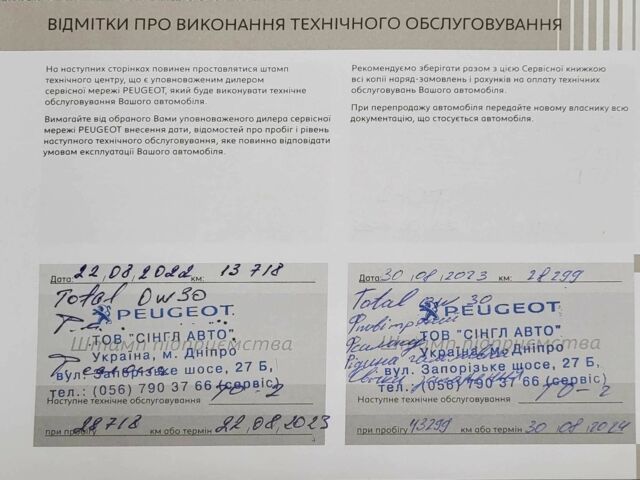 ВІДМІТКИ ПРО ВИКОНАННЯ ТЕХНІЧНОГО ОБСЛУГОВУВАННЯ
На наступних сторінках повинен проставлятися штамп
технічного центру, що є уповноваженим дилером
сервісної мережі PEUGEOT, який буде виконувати технічне
обслуговування Вашого автомобіля.
Вимагайте від обраного Вами уповноваженого дилера сервісної
мережі PEUGEOT внесення дати, відомостей про пробіг і рівень
наступного технічного обслуговування, яке повинно відповідати
умовам експлуатації Вашого автомобіля.
Рекомендуємо зберігати разом з цією Сервісної книжкою
всі копії наряд-замовлень і рахунків на оплату технічних
обслуговувань Вашого автомобіля.
При перепродажу автомобіля передайте новому власнику всю
документацію, що стосується автомобіля.
Дата: 22,08,2022 км: 13 718
Total OW30
PEUGEOT
ТОВ "СІНГЛ АВТО"
Штамп підприємства
Україна, м. Дніпро
вул. Запорізьке шосе, 27 Б,
тел.: (056) 790 37 66 (сервіс)
Наступне технічне обслуговування ТО-2
при пробігу 28718 км або термін 22,08,2023
Дата: 30,08,2023 км: 28299
Total OW 30
PEUGEOT
ТОВ "СІНГЛ АВТО"
Штамп підприємства
Україна, м. Дніпро
вул. Запорізьке шосе, 27 Б,
тел.: (056) 790 37 66 (сервіс)
Наступне технічне обслуговування ТО-2
при пробігу 43299 км або термін 30,08,2024